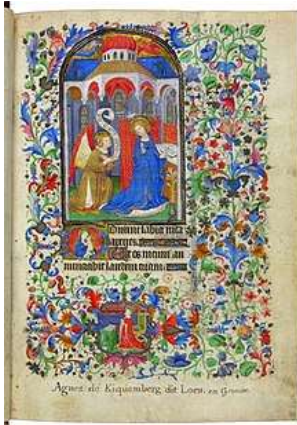 Domine labia mea a
peries.
Et os meum an
nunciabit laudem tuam.
Agnes de Kiquemberg dit Loen. en